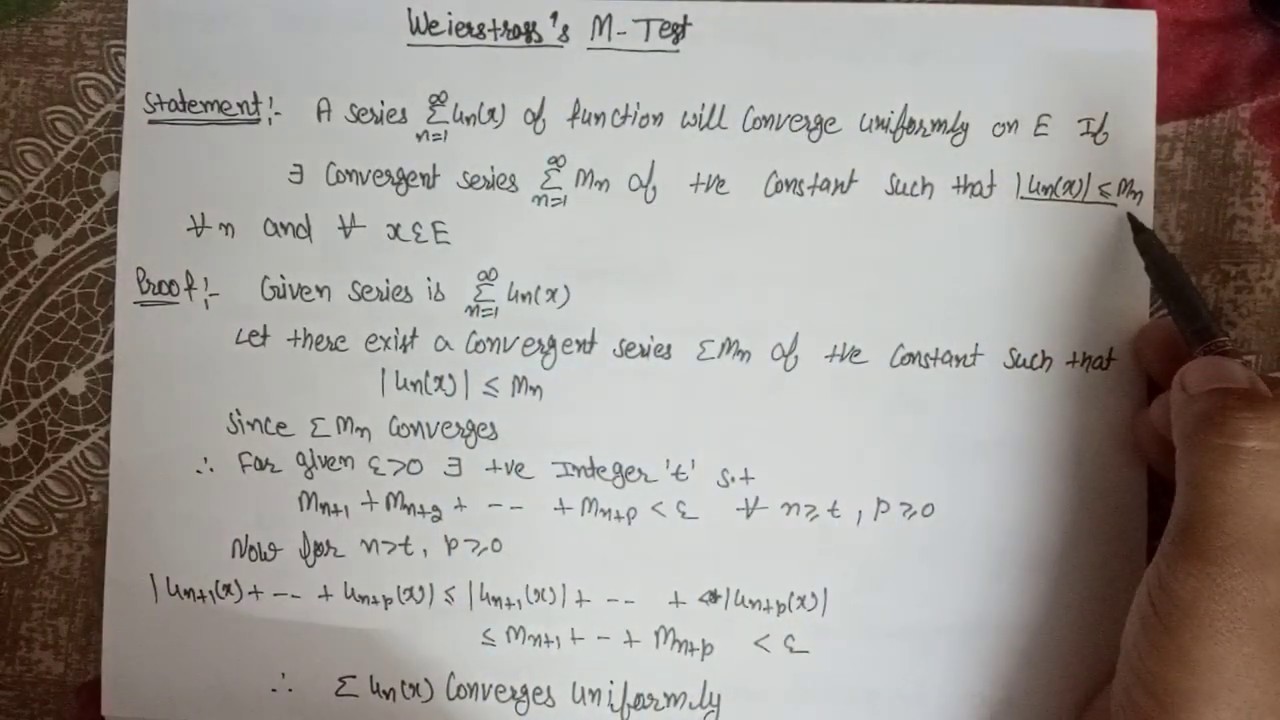 Weierstrass's M-Test
Statement:- A series ∞Σn=1 Un(x) of function will converge uniformly on E If
∃ Convergent series ∞Σn=1 Mn of +ve Constant such that |Un(x)| ≤ Mn
∀ n and ∀ x ε E
Proof:- Given series is ∞Σn=1 Un(x)
Let there exist a convergent series ΣMn of +ve Constant such that
|Un(x)| ≤ Mn
Since ΣMn Converges
∴ For given ε>0 ∃ +ve Integer 't' s.t
Mn+1 + Mn+2 + -- + Mn+p < ε ∀ n ≥ t, p ≥ 0
Now for n>t, p≥0
|Un+1(x) + -- + Un+p(x)| ≤ |Un+1(x)| + -- + |Un+p(x)|
≤ Mn+1 + - + Mn+p < ε
∴ ΣUn(x) Converges Uniformly